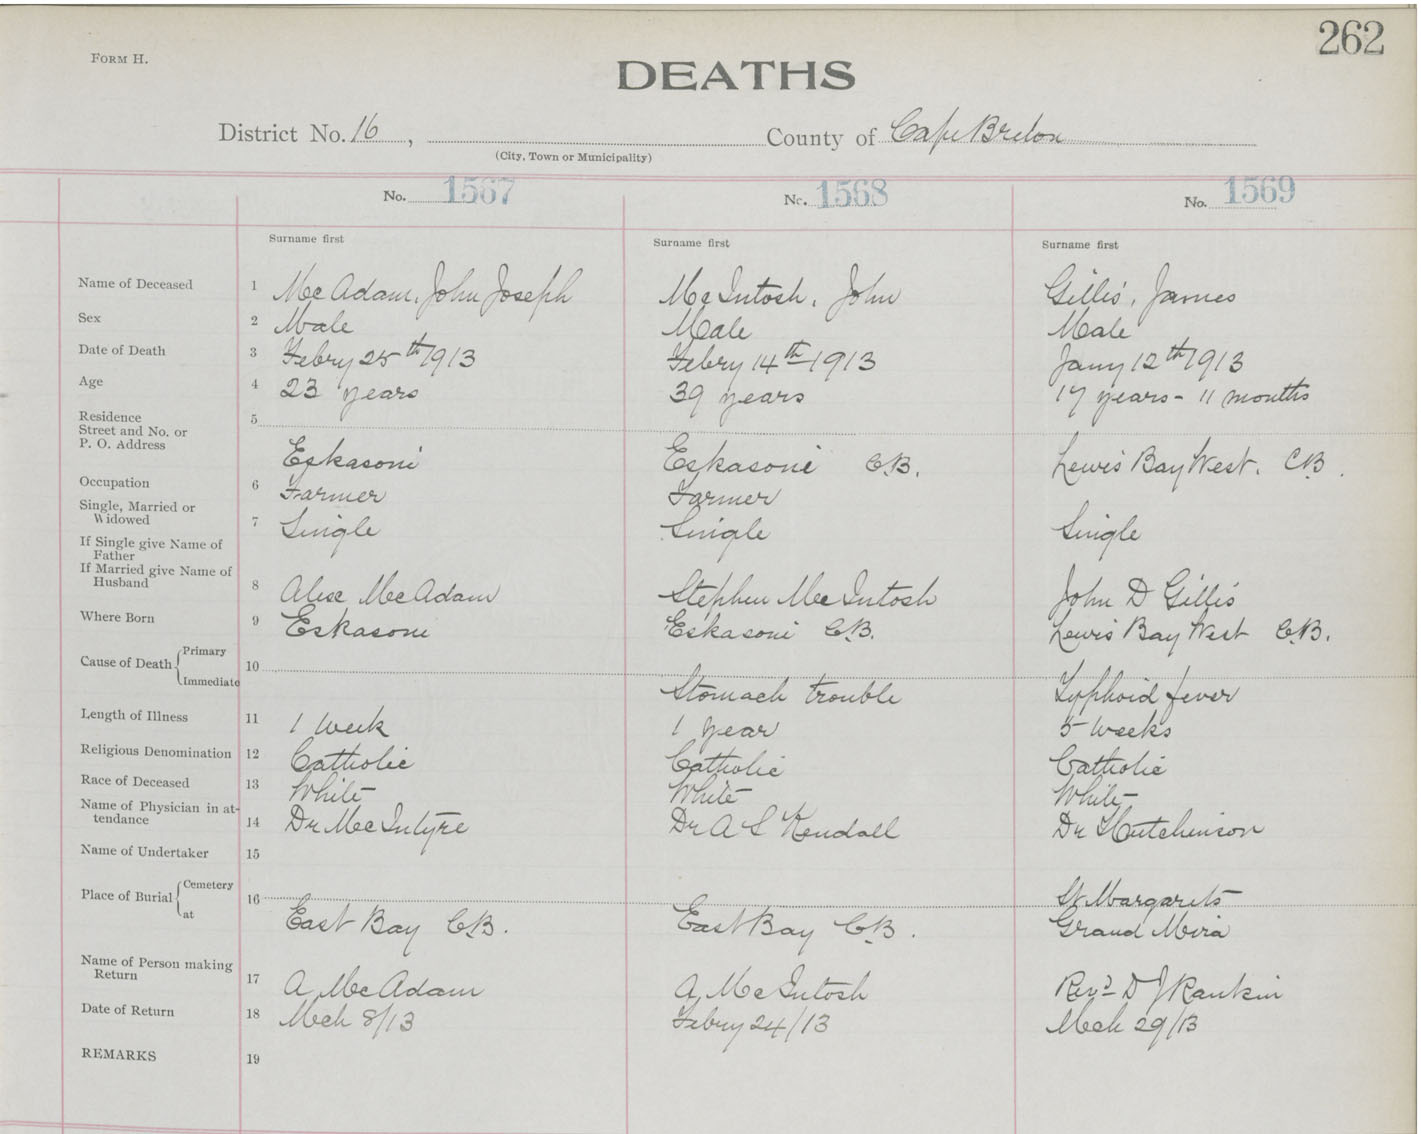 262
FORM H.
DEATHS
District No. 16, County of Cape Breton
(City, Town or Municipality)
No. 1567 No. 1568 No. 1569
Surname first Surname first Surname first
Name of Deceased 1 McAdam, John Joseph McIntosh, John Gillis, James
Sex 2 Male Male Male
Date of Death 3 Febry 25th 1913 Febry 14th 1913 Jany 12th 1913
Age 4 23 years 39 years 17 years - 11 months
Residence
Street and No. or
P. O. Address 5 Eskasoni Eskasoni C.B. Lewis Bay West. C.B.
Occupation 6 Farmer Farmer
Single, Married or
Widowed 7 Single Single Single
If Single give Name of
Father
If Married give Name of
Husband 8 Alex McAdam Stephen McIntosh John D Gillis
Where Born 9 Eskasoni Eskasoni C.B. Lewis Bay West C.B.
Cause of Death Primary
Immediate 10 Stomach trouble Typhoid fever
Length of Illness 11 1 week 1 year 5 weeks
Religious Denomination 12 Catholic Catholic Catholic
Race of Deceased 13 White White White
Name of Physician in at-
tendance 14 Dr McIntyre Dr A S Kendall Dr Hutchinson
Name of Undertaker 15
Place of Burial Cemetery 16 St Margarets
at East Bay C.B. East Bay C.B. Grand Mira
Name of Person making
Return 17 A McAdam A McIntosh Revd D J Rankin
Date of Return 18 Mch 8/13 Febry 24/13 Mch 29/13
REMARKS 19